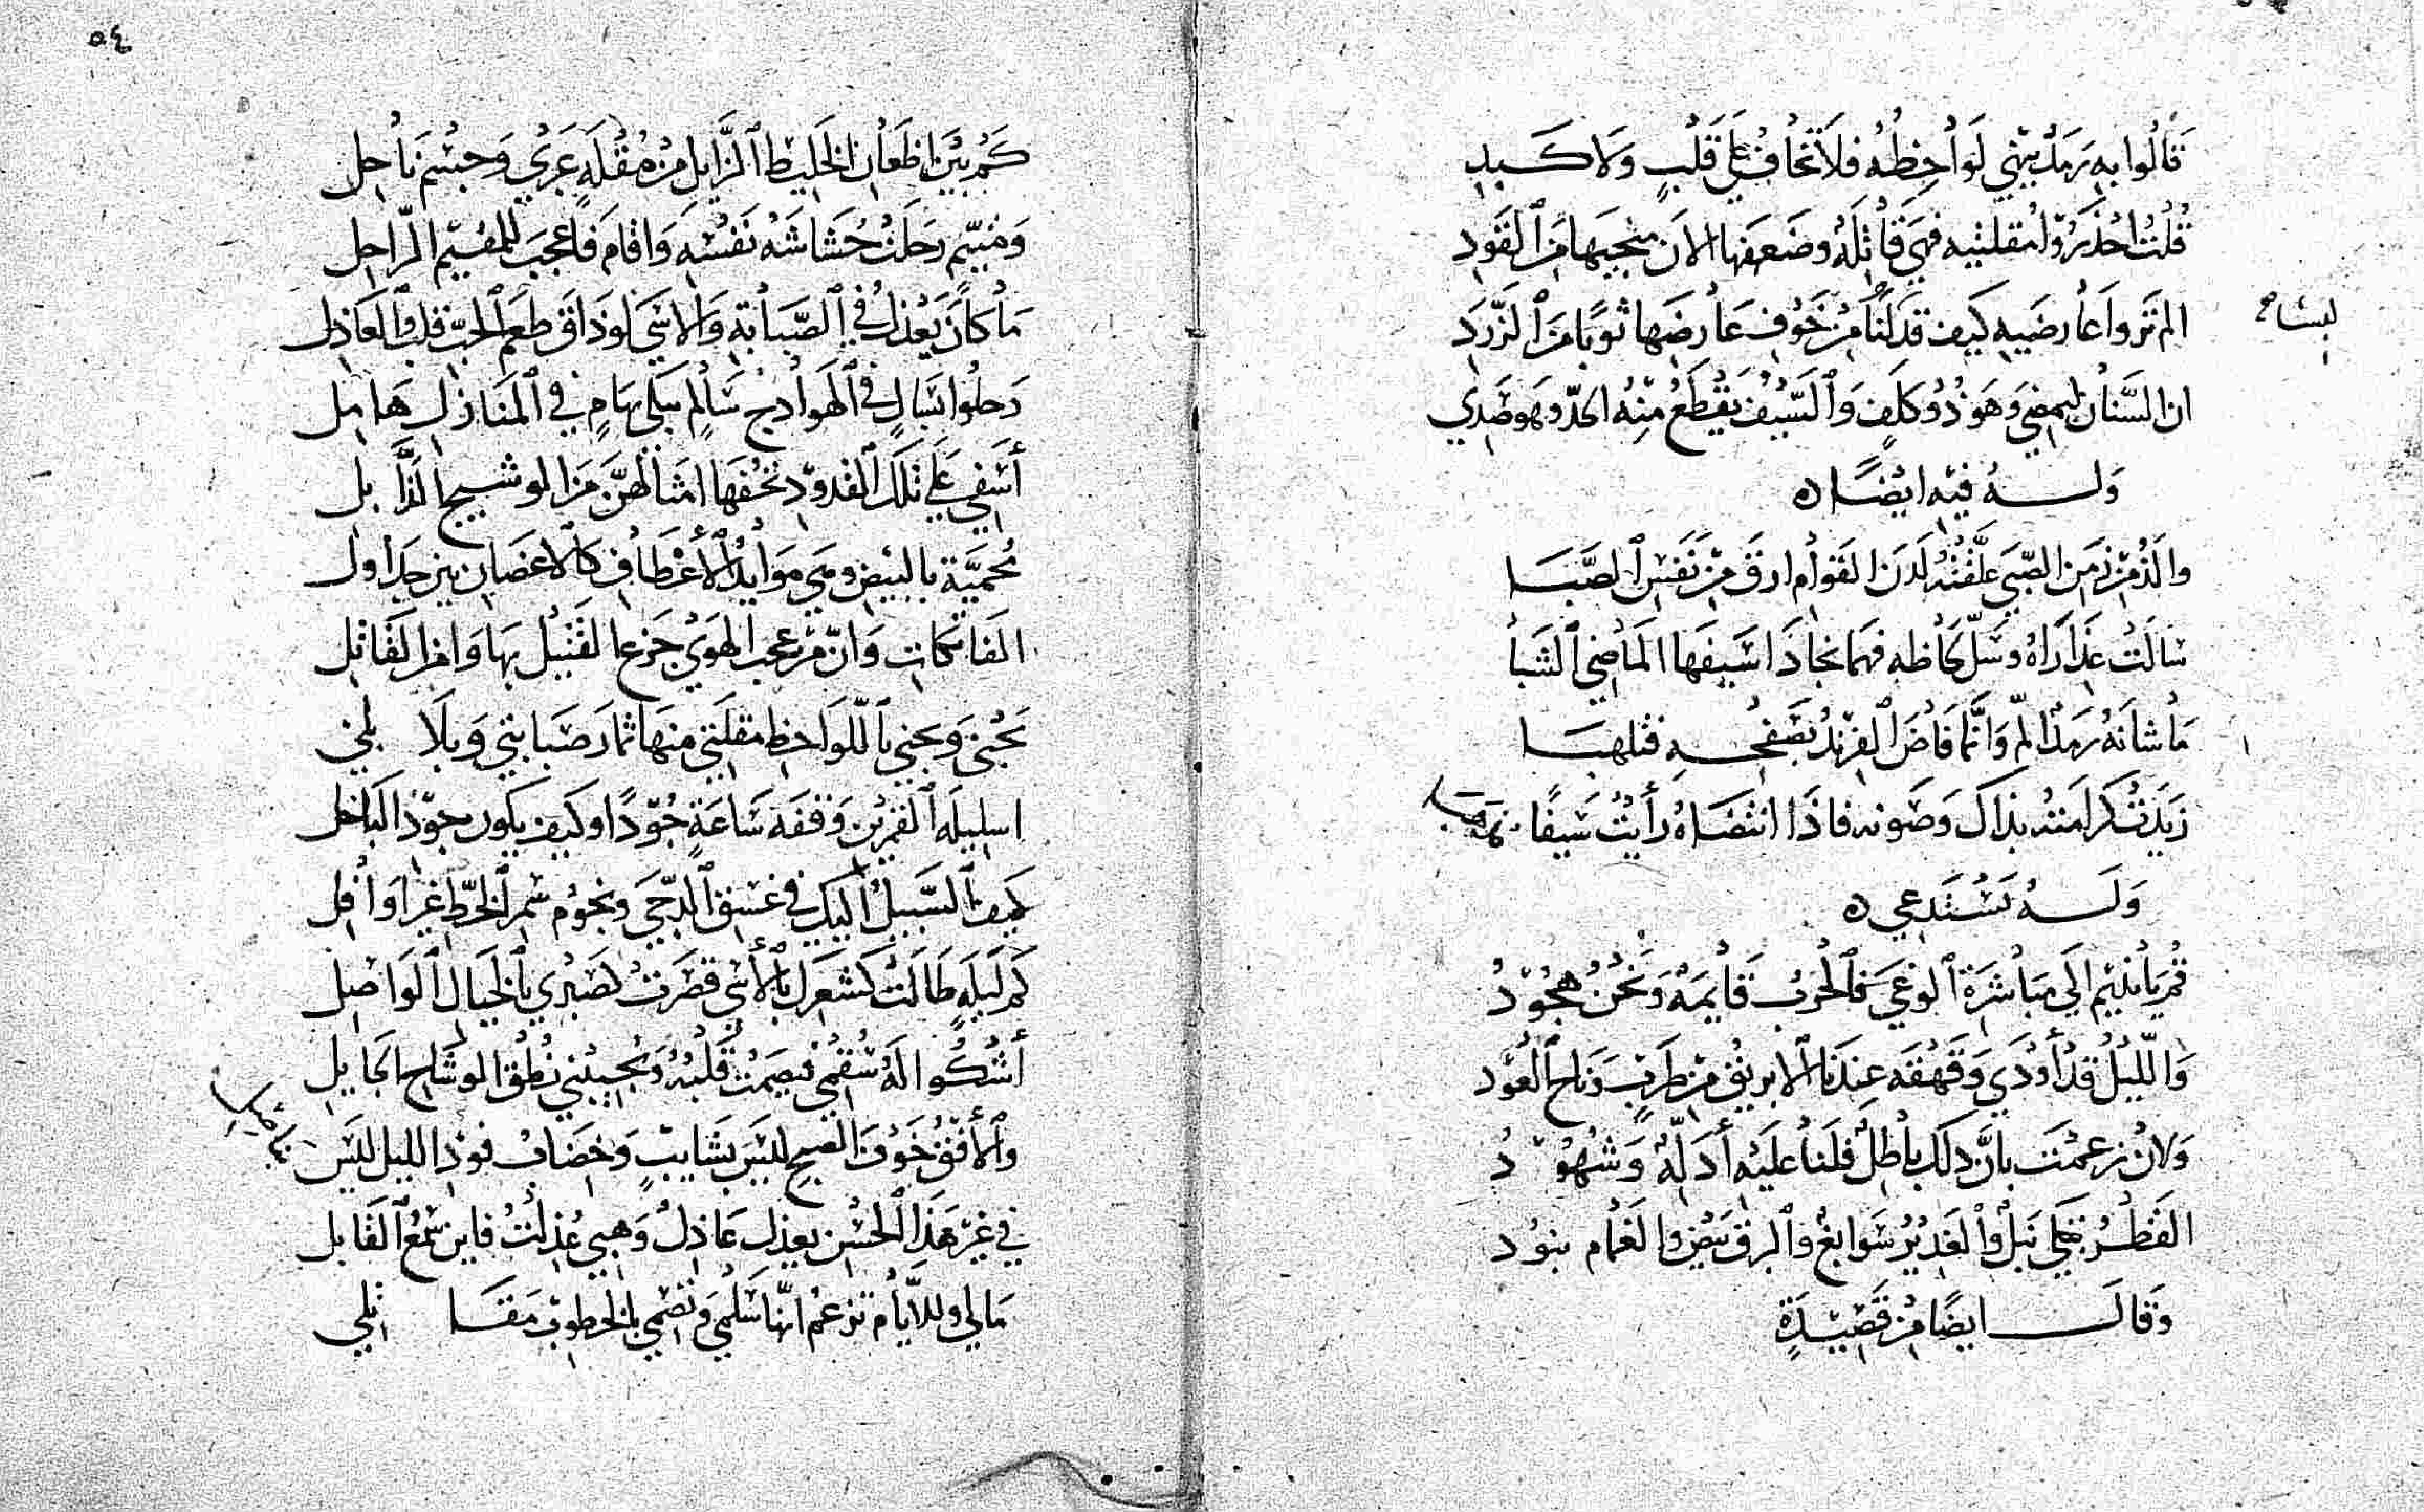 قَالُوا بِهِ رَمَدٌ يثني لَوَاحِظُهُ فَلَا تَخَافُ عَلَى قَلْبٍ وَلَا كَبِدِ
قُلْتُ احْذَرُوا مُقْلَتَيْهِ فَهِيَ قَاتِلَةٌ وَضَعْفُهَا الآنَ مِنَ الْقَوَدِ
المْ تَرَوا عَارِضَيهِ كَيفَ قَد لَبِسَا مِنْ خَوْفِ عَارِضِهَا ثَوْبًا مِنَ الزَّرَدِ
لبسا
ان السِّنَانَ لَيَمْضِي وَهُوَ ذُو كَلَفٍ وَالسَّيْفُ يَقْطَعُ مِنْهُ الحَدُّ وهو صَدِي
وَلَهُ فِيهِ ايْضًا
والَذَّ مِنْ زَمَنِ الصِّبَى عُلِّقْتُهُ لَدْنَ القَوَامِ ارَقَّ مِنْ نَفَسِ الصَّبَا
سَالَتْ عِذَارَاهُ وَسَلَّ لِحَاظَهُ فَهُمَا نِجَادَا سَيفِهَا المَاضِي الشَّبَا
مَا شَانَهُ رَمَدٌ أَلَمَّ وَانَّمَا فَاضَ الفِرِنْدُ بِصَفْحِهِ فَتَلَهَّبَا
بذاكَ وَصَونِهِ فَاذَا انْتَضَاهُ رَأَيْتُ سَيفًا مذهبا
وَلَهُ يَسْتَدْعِي
قُمْ يَا نَدِيم الَى مُبَاشَرَةِ الوَغَى فَالْحَرْبُ قَايِمَةٌ وَنَحْنُ هُجُوْدُ
وَاللَّيْلُ قَدْ أَوْدَى وَقَهْقَهَ عِنْدَنَا الابريقُ مِنْ طَرَبٍ وَنَاحَ العُوْد
وَلَانْ زعمْتَ بانَّ ذلكَ بَاطِلٌ فَلَنَا عَلَيْهِ أَدِلَّةٌ وَشُهُوْدُ
القَطْرُ نَبْلٌ وَالغَدِيْرُ سَوَابِغٌ وَالبرق بَيْضٌ والغَمَام بنود
وَقَالَ ايضًا مِنْ قَصِيْدَةٍ
٥٤
كَمْ بَيْنَ اظْعَانِ الخَلِيْطِ الزَّايِلِ مِنْ مُقْلَةٍ عَبْرَى وَجِسْمٍ نَاحِلِ
وَمُتَيَّمٍ رَحَلَتْ حُشَاشَةُ نَفْسِهِ وَاقَامَ فَاعْجَبْ لِلْمُقِيْمِ الرَّاحِلِ
مَا كَانَ يَعْذِلُ فِي الصَّبَابَةِ وَالأسَى لَو ذَاقَ طَعْمَ الحُبِّ قَلبُ العَاذِلِ
رَحَلُوا بِسَالٍ فِي الهَوَادِجِ سَالِمٍ يَبْكِي بِهَامٍ فِي المَنَازِلِ هَامِلِ
أَسَفِي عَلَى تِلْكَ القُدُوْدِ تَحُفُّهَا امْثَالُهُنَّ مِنَ الوَشِيجِ الذَّابِلِ
مُحْمَيَّة بالبيض وَهي مَوَايِدُ الأَعْطَافِ كَالاغصَانِ بين جداول
الفَاتِكَاتِ وَانَّ مِنْ عَجَبِ الهَوَى جَزع القَتِيْلِ بِهَا وَامنُ القَاتِل
تَجْنِي وَتجنِي بِاللَّوَاحِظِ مُقلَتِي مِنهَا ثِمَارَ صَبَابَتِي وَبَلَابلي
القَمَرَيْنِ وَقْفَةَ سَاعَةٍ جُوْدًا وَكَيفَ يَكُونُ جودُ البَاخِلِ
كَيفَ السَّبِيلُ إِلَيكِ فِي غَسَقِ الدُّجَى وَنُجُومُ سُمْرِ الخَطِّ غَيْرُ أَوَافِلِ
كَمْ لَيلَةٍ طَالَتْ كَشَعْرِكِ بِالأَسَى قَصُرَتْ لصَبري بِالخَيَالِ الوَاصِلِ
أَشْكُوا لَهُ سُقْمِي فيصمتُ قُلْبُهُ وَيُجِيبُنِي نُطْقُ الوِشَاحِ الجَايِلِ
وَالأُفْقُ خَوْفَ الصُّبحِ لَيْسَ بشَايِبٍ وَخِضَابُ فَوْدِ الليل ليسَ بناصل
فِي غَيْرِ هَذَا الحُسْنِ يعذِلُ عَاذِلٌ وَهبِي عُذِلْتُ فَاينَ سَمْعُ القَابِلِ
مَا لِي وللأيَّامِ تَزعمُ انَّهَا سلمِي وَتصمِي بِالخطُوبِ مَقَاتلِي